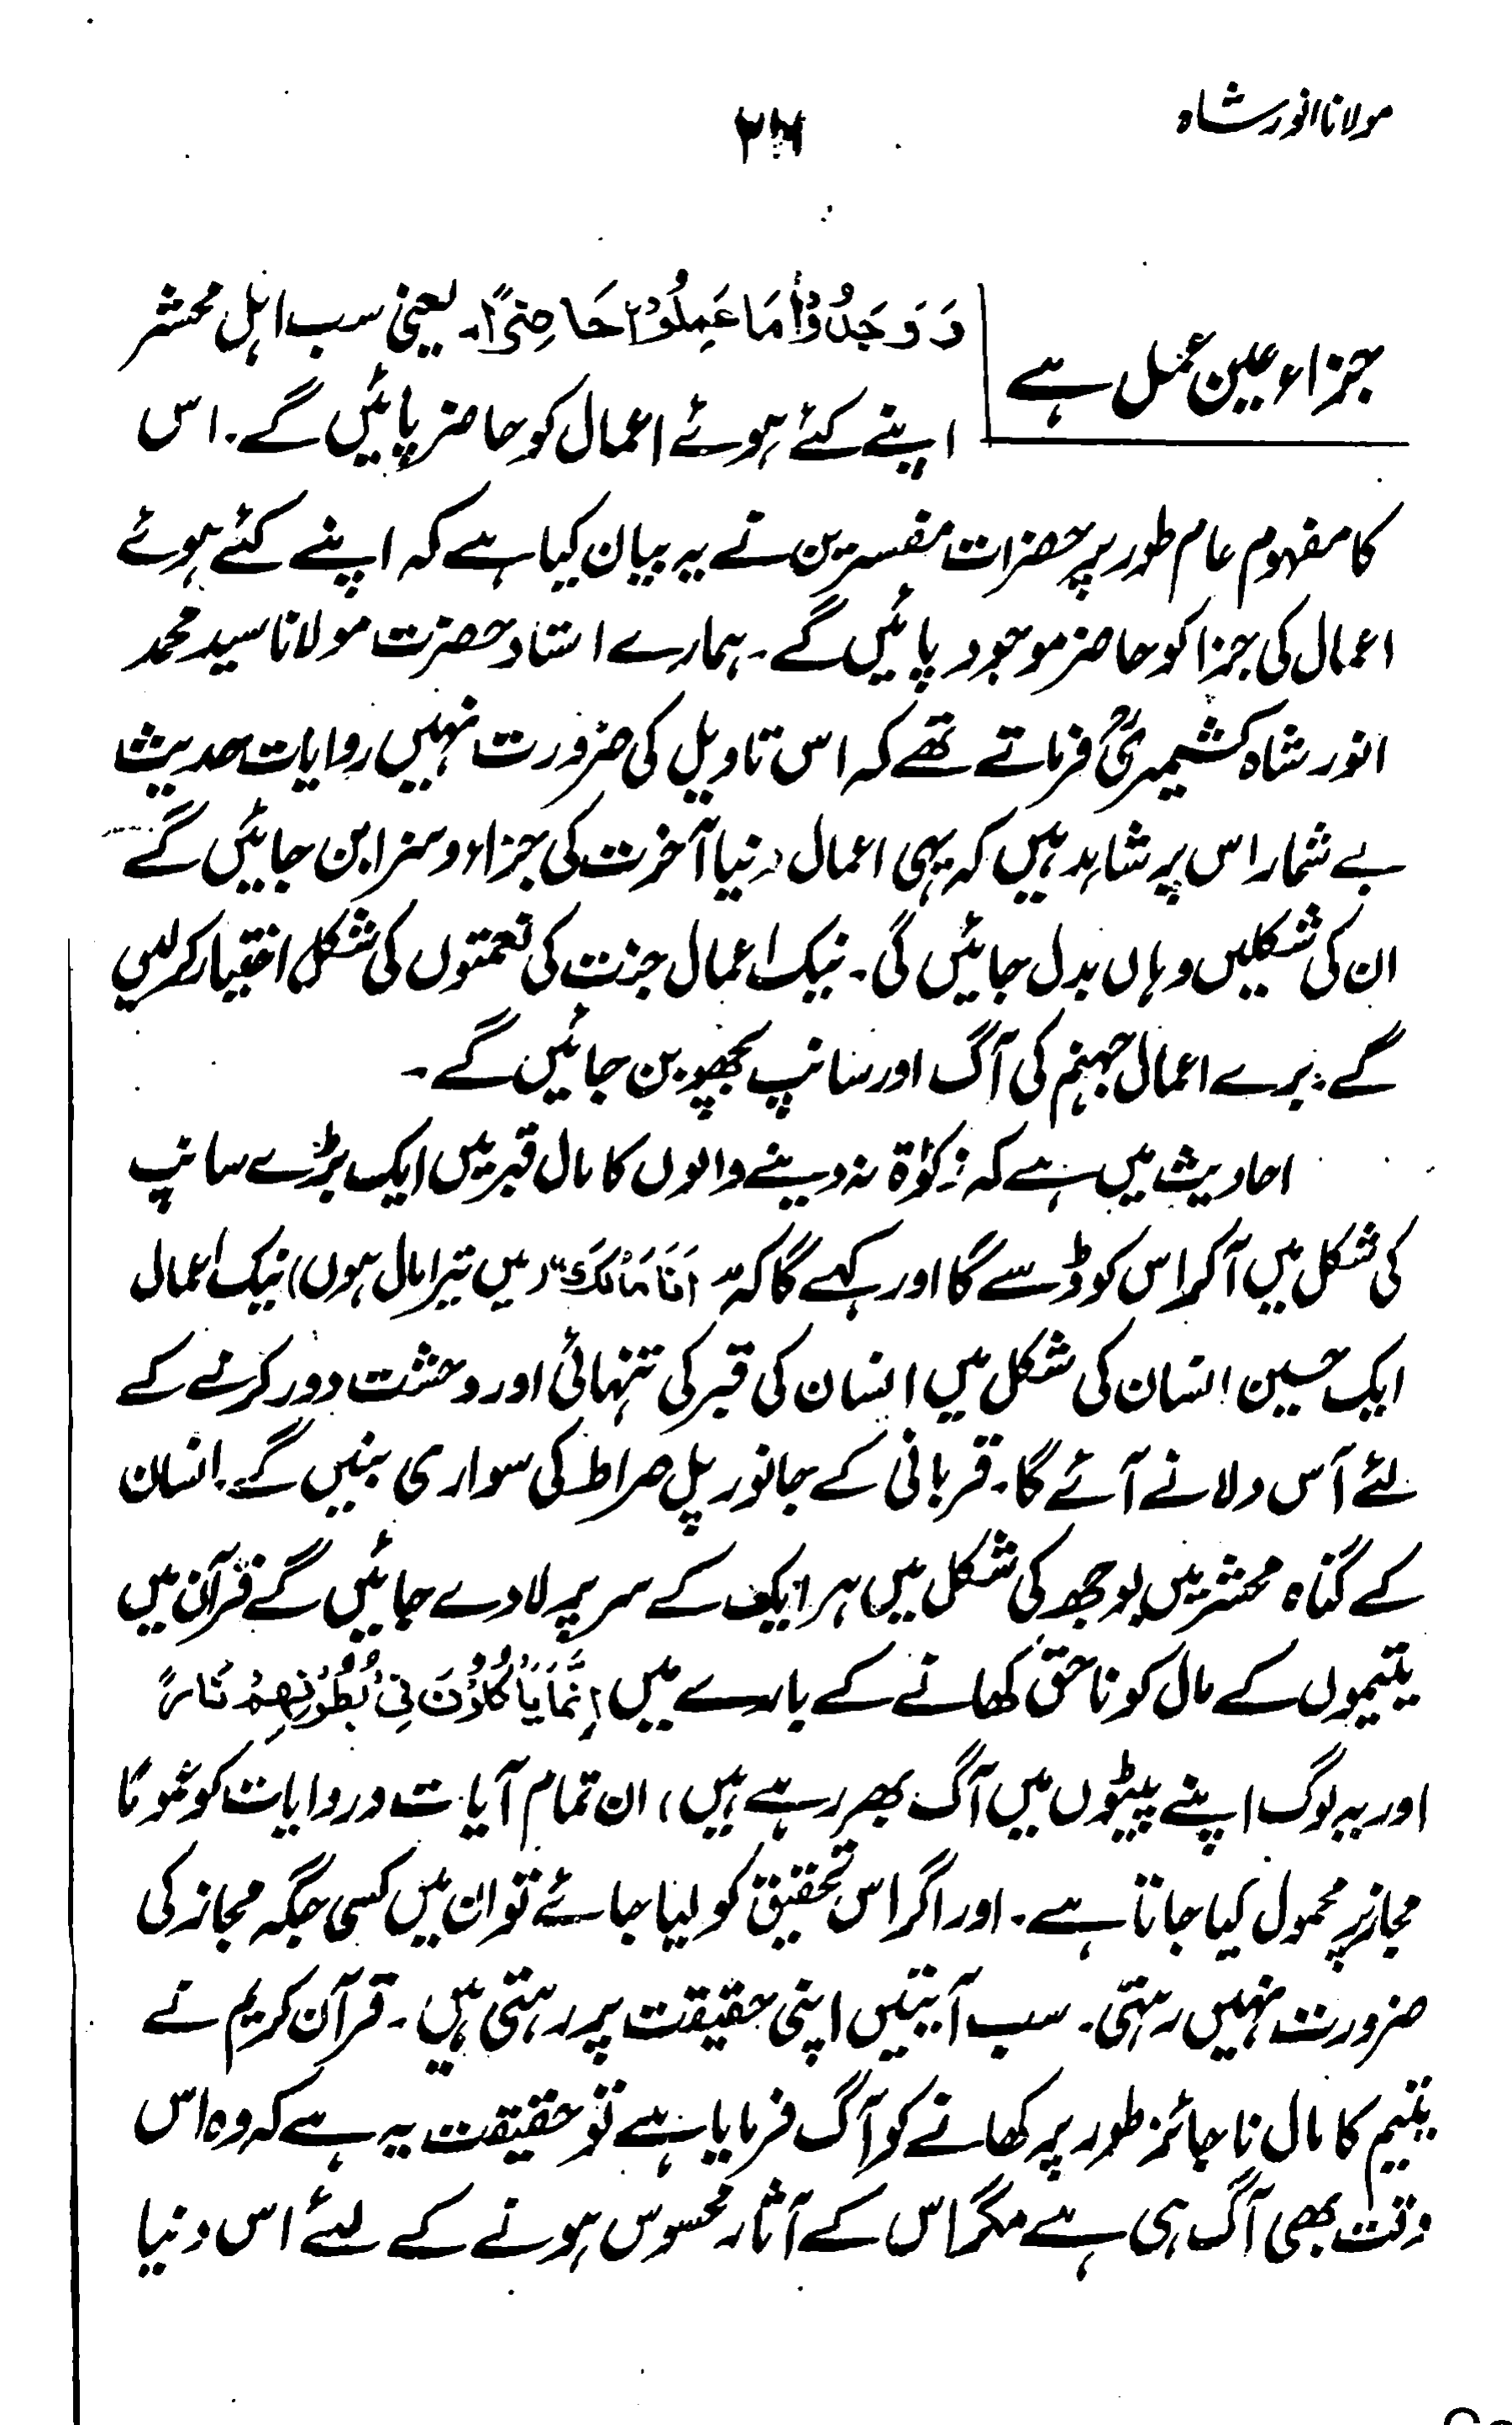 مولانا انور شاہ
۲۶
جزاء عین عمل ہے
وَوَجَدُوْا مَا عَمِلُوْا حَاضِرًا۔ یعنی سب اہل محشر
اپنے کئے ہوئے اعمال کو حاضر پائیں گے۔ اس
کا مفہوم عام طور پر حضرات مفسرین نے یہ بیان کیا ہے کہ اپنے کئے ہوئے
اعمال کی جزا کو حاضر موجود پائیں گے۔ ہمارے استاد حضرت مولانا سید محمد
انور شاہ کشمیریؒ فرماتے تھے کہ اس تاویل کی ضرورت نہیں روایات حدیث
بے شمار اس پر شاہد ہیں کہ یہی اعمال دنیا آخرت کی جزاء و سزا بن جائیں گے
ان کی شکلیں وہاں بدل جائیں گی۔ نیک اعمال جنت کی نعمتوں کی شکل اختیار کرلیں
گے، برے اعمال جہنم کی آگ اور سانپ بچھو بن جائیں گے۔
احادیث میں ہے کہ زکوٰۃ نہ دینے والوں کا مال قبر میں ایک بڑے سانپ
کی شکل میں آکر اس کو ڈسے گا اور کہے گا کہ "اَنَا مَالُكَ" (میں تیرا مال ہوں) نیک اعمال
ایک حسین انسان کی شکل میں انسان کی قبر کی تنہائی اور وحشت دور کرنے کے
لئے آس دلانے آئے گا۔ قربانی کے جانور پل صراط کی سواری بنیں گے۔ انسان
کے گناہ محشر میں بوجھ کی شکل میں ہر ایک کے سر پر لادے جائیں گے قرآن میں
یتیموں کے مال کو ناحق کھانے کے بارے میں اِنَّمَا يَاْكُلُوْنَ فِىْ بُطُوْنِهِمْ نَارًا
اور یہ لوگ اپنے پیٹوں میں آگ بھر رہے ہیں، ان تمام آیات و روایات کو عموماً
مجاز پر محمول کیا جاتا ہے۔ اور اگر اس تحقیق کو لیا جائے تو ان میں کسی جگہ مجاز کی
ضرورت نہیں رہتی۔ سب آیتیں اپنی حقیقت پر رہتی ہیں۔ قرآن کریم نے
یتیم کا مال ناجائز طور پر کھانے کو آگ فرمایا ہے تو حقیقت یہ ہے کہ وہ اس
وقت بھی آگ ہی ہے مگر اس کے آثار محسوس ہونے کے لئے اس دنیا